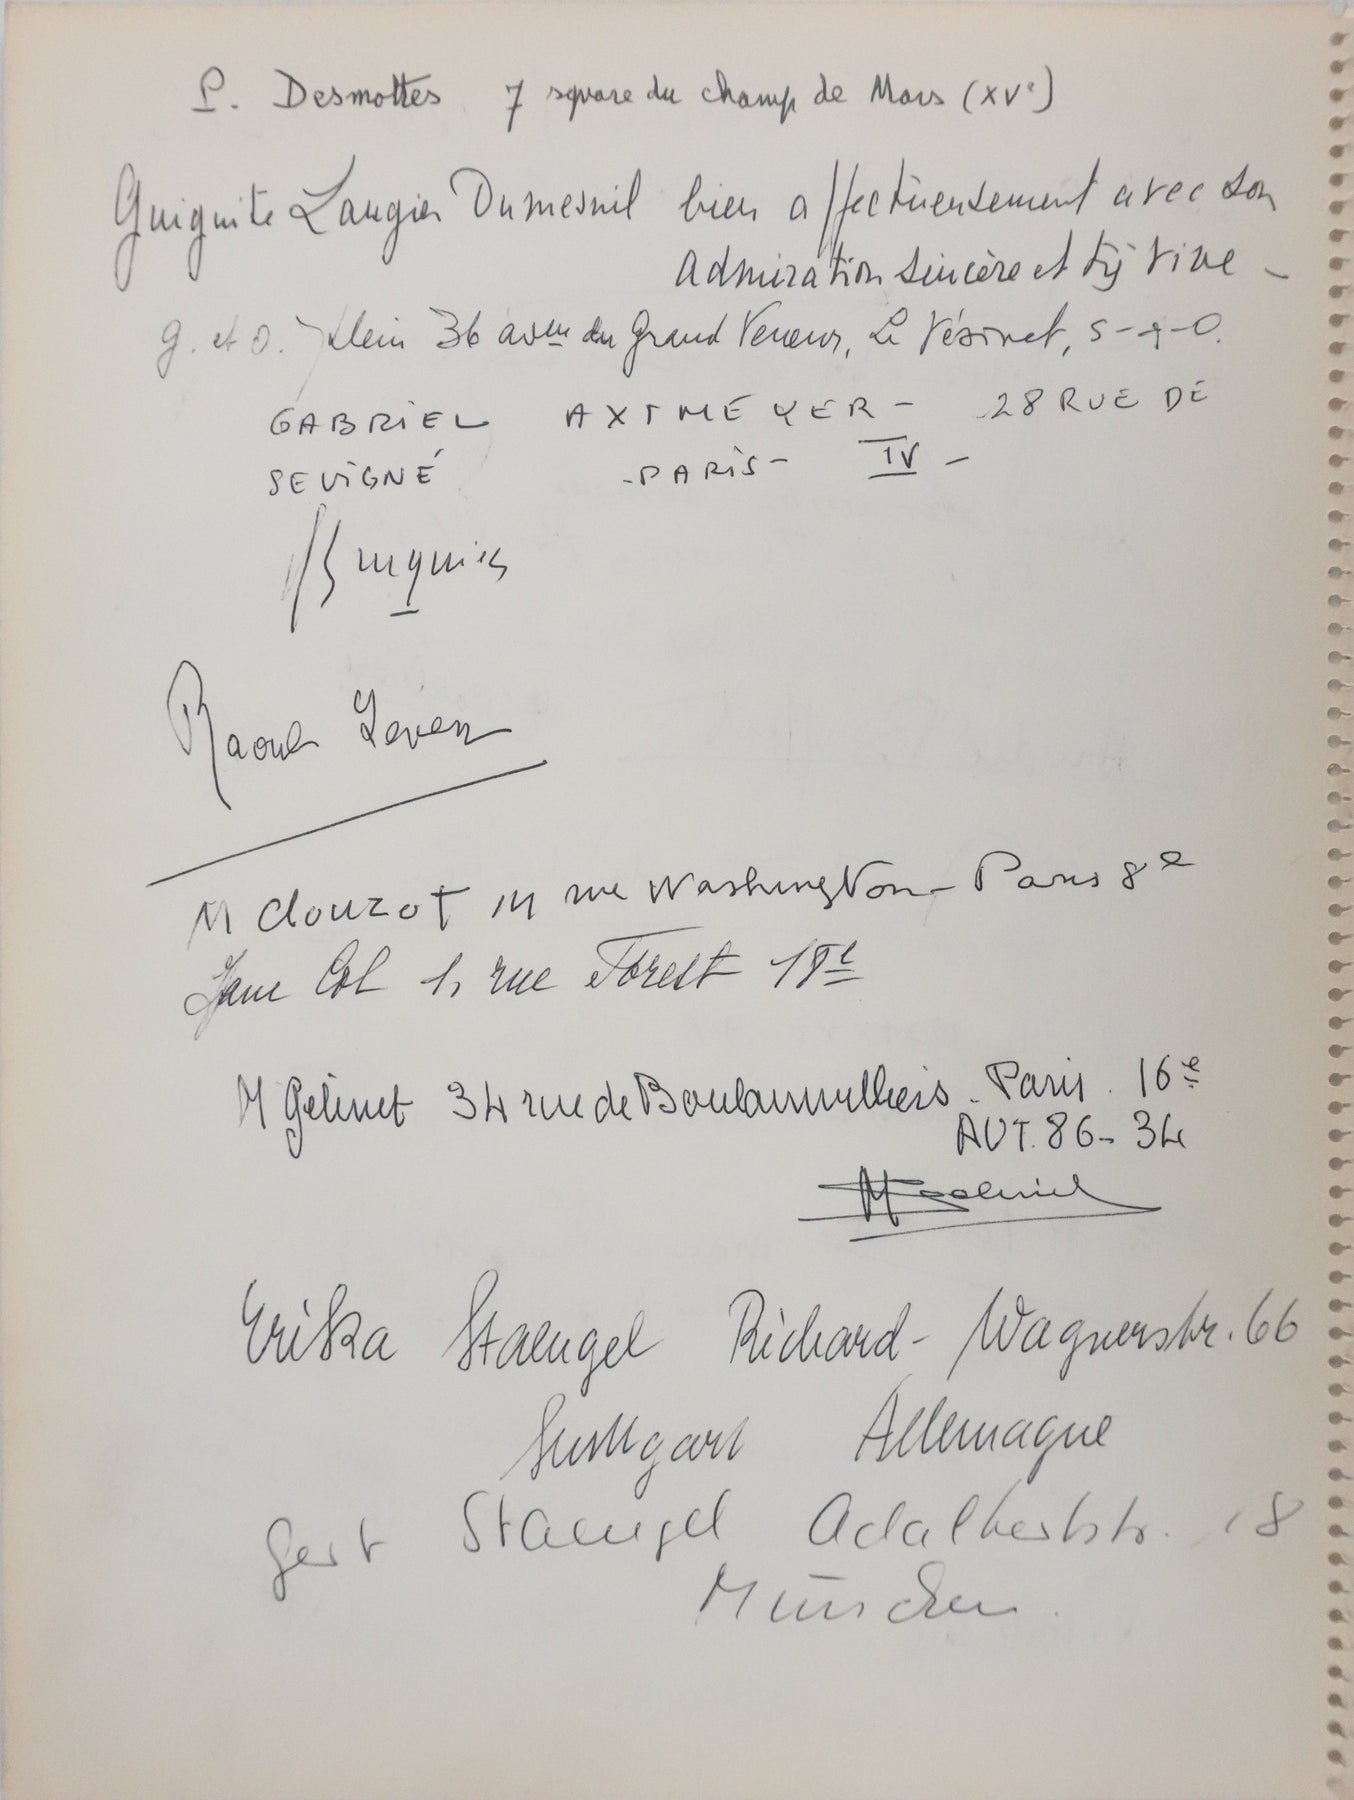 P. Desmottes 7 square du champ de Mars (XVe)
Guiguite Laugier Dumesnil bien affectueusement avec son
admiration sincère et tjs vive -
G. et O. Klein 36 avenue du Grand Veneur, Le Vésinet, S-&-O.
GABRIEL AXTMEYER - 28 RUE DE
SEVIGNÉ - PARIS - IV -
Raoul Leven
M Clouzot 14 rue Washington - Paris 8e
Jane Col 1, rue Forest 18e
M Gelinet 34 rue de Boulainvilliers - Paris. 16e
AUT. 86-34
Erika Staengel Richard-Wagnerstr. 66
Stuttgart Allemagne
Gert Staengel Adalbertstr. 18
München.